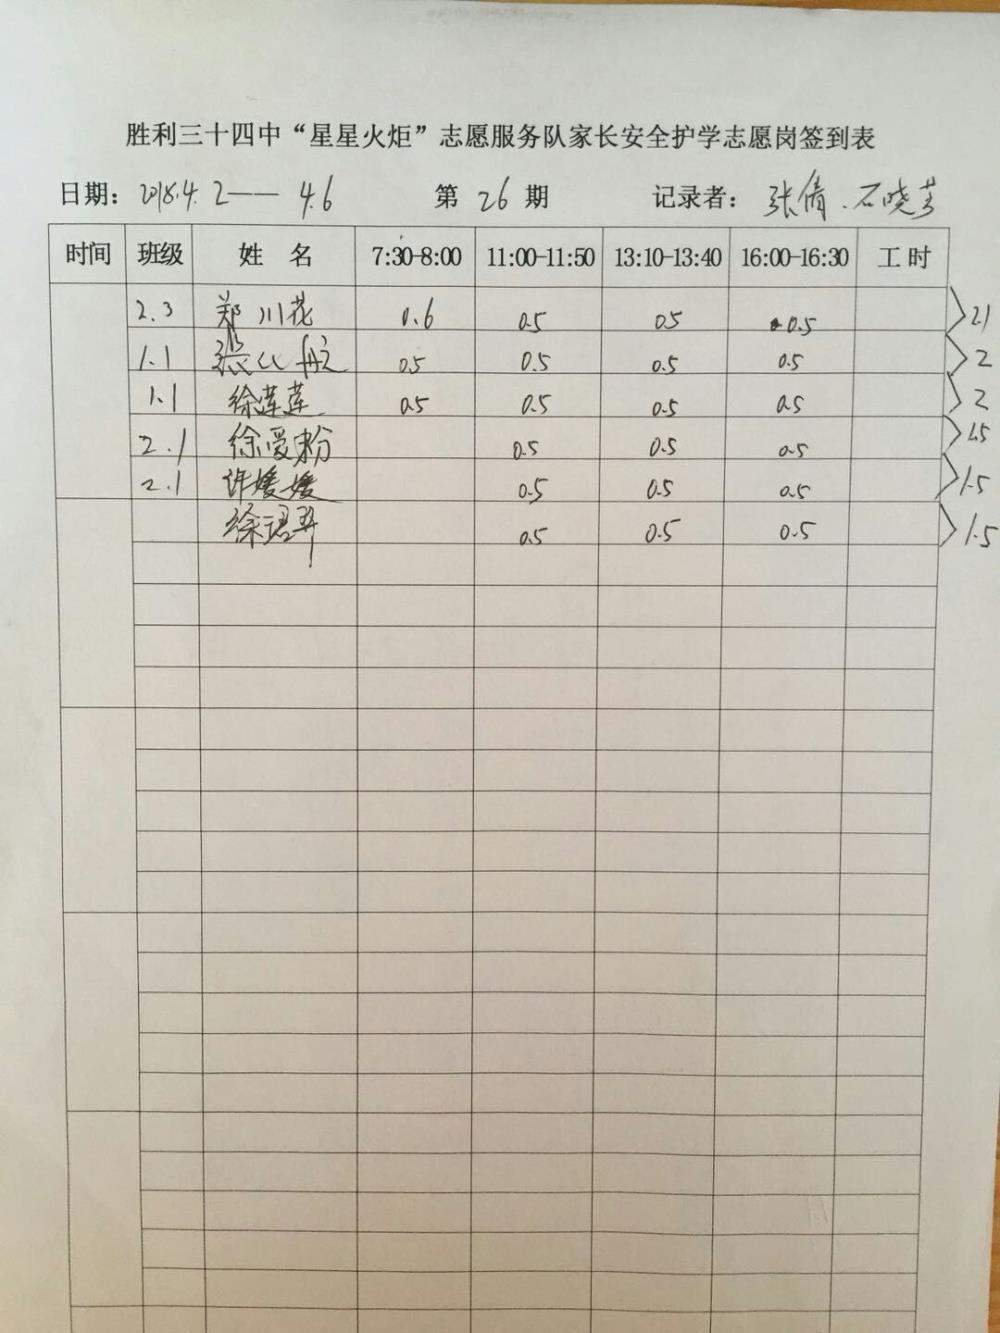 胜利三十四中“星星火炬”志愿服务队家长安全护学志愿岗签到表
日期: 2018.4.2—— 4.6 第 26 期 记录者: 张倩.石晓芳
时间 班级 姓 名 7:30-8:00 11:00-11:50 13:10-13:40 16:00-16:30 工时
2.3 郑川花 0.6 0.5 0.5 0.5 2.1
1.1 0.5 0.5 0.5 0.5 2
1.1 徐莲莲 0.5 0.5 0.5 0.5 2
2.1 徐爱粉 0.5 0.5 0.5 1.5
2.1 许媛媛 0.5 0.5 0.5 1.5
0.5 0.5 0.5 1.5